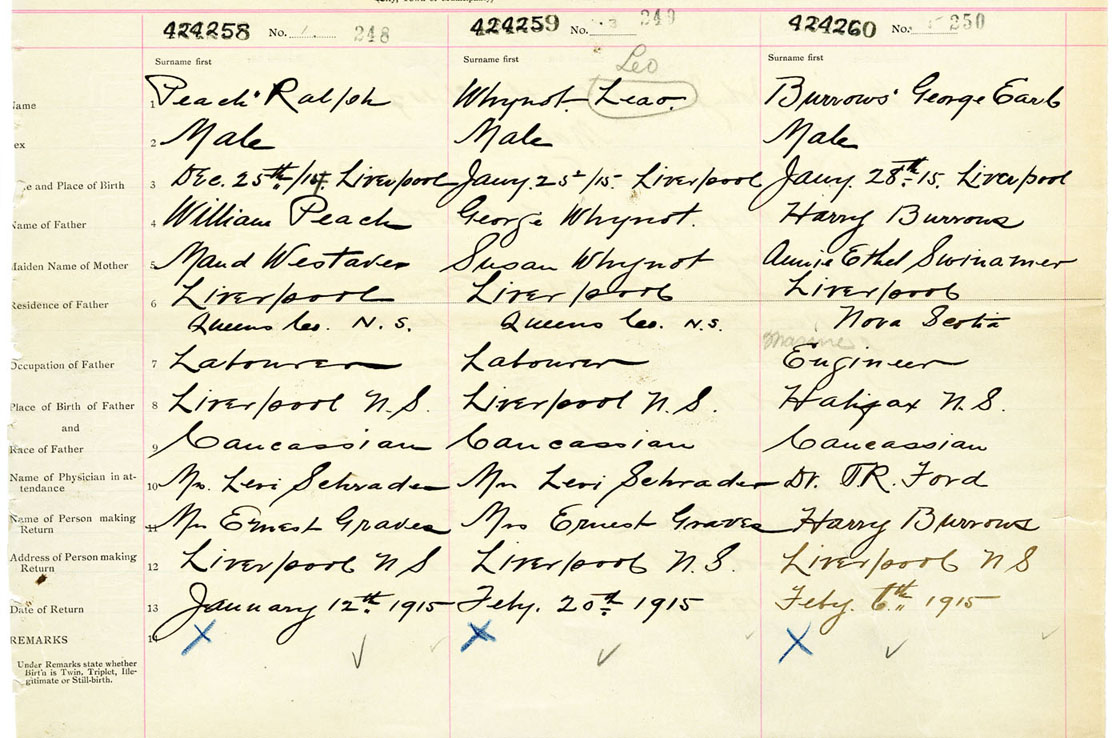 424258 No. 248 424259 No. 249 424260 No. 250
Surname first Surname first Surname first
Leo
Name 1 Peach Ralph Whynot Leao. Burrows George Earl
ex 2 Male Male Male
e and Place of Birth 3 Dec. 25th/14. Liverpool Jany. 25t/15. Liverpool Jany. 28th 15. Liverpool
Name of Father 4 William Peach George Whynot. Harry Burrows
Maiden Name of Mother 5 Maud Westaver Susan Whynot Annie Ethel Swinamer
Residence of Father 6 Liverpool Liverpool Liverpool
Queens Co. N.S. Queens Co. N.S. Nova Scotia
marine
Occupation of Father 7 Labourer Labourer Engineer
Place of Birth of Father 8 Liverpool N.S. Liverpool N.S. Halifax N.S.
and
Race of Father 9 Caucassian Caucassian Caucassian
Name of Physician in at-
tendance 10 Mrs. Levi Schrader Mrs Levi Schrader Dr. T.R. Ford
Name of Person making
Return 11 Mrs Ernest Graves Mrs Ernest Graves Harry Burrows
Address of Person making
Return 12 Liverpool N S Liverpool N.S. Liverpool N S
Date of Return 13 January 12th 1915 Feby. 20th 1915 Feby. 6th 1915
REMARKS 14
Under Remarks state whether
Birth is Twin, Triplet, Ille-
gitimate or Still-birth.